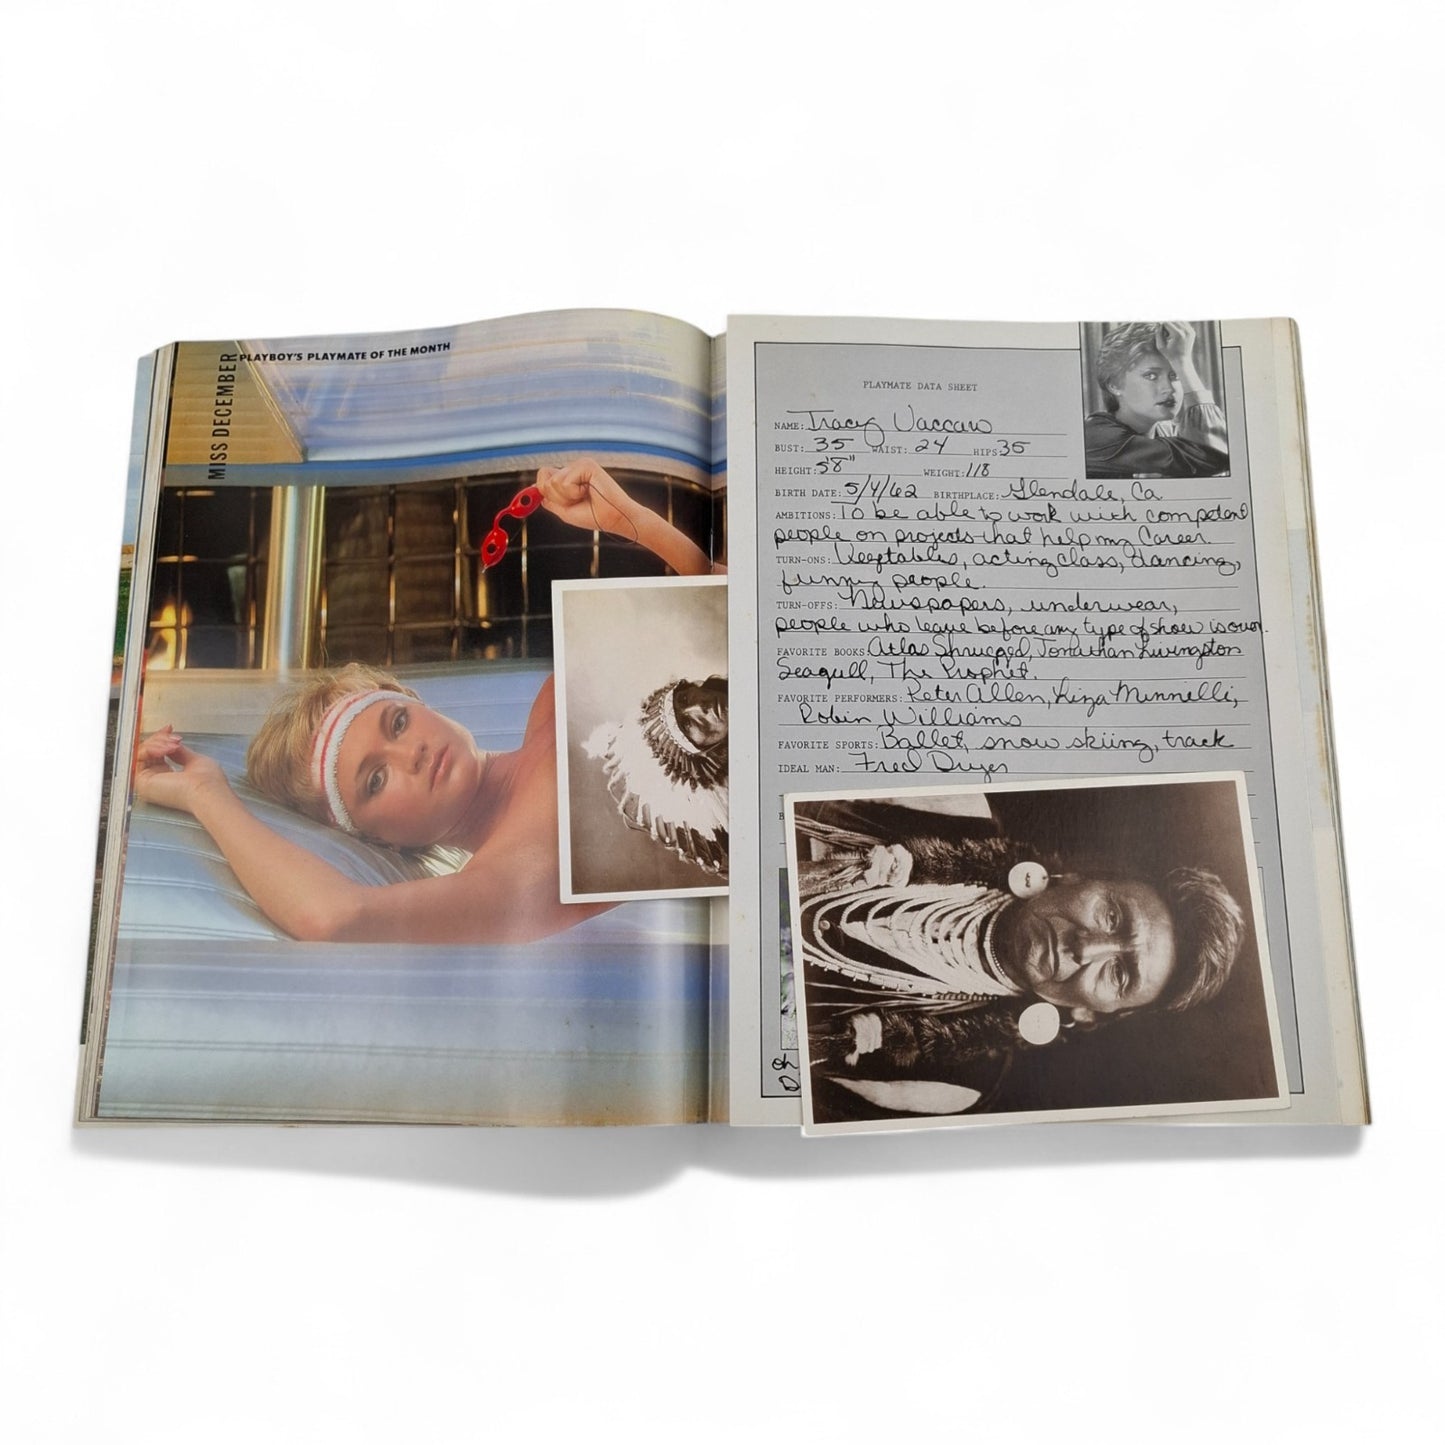 MISS DECEMBER
PLAYBOY'S PLAYMATE OF THE MONTH
PLAYMATE DATA SHEET
NAME: Tracy Vaccaro
BUST: 35 WAIST: 24 HIPS 35
HEIGHT: 5'8" WEIGHT: 118
BIRTH DATE: 5/4/62 BIRTHPLACE: Glendale, Ca
AMBITIONS: To be able to work with competent
people on projects that help my Career.
TURN-ONS: Vegtables, acting class, dancing,
funny people.
TURN-OFFS: Newspapers, underwear,
people who leave before any type of show is over.
FAVORITE BOOKS: Atlas Shrugged, Jonathan Livingston
Seagull, The Prophet.
FAVORITE PERFORMERS: Peter Allen, Liza Minnelli,
Robin Williams
FAVORITE SPORTS: Ballet, snow skiing, track
IDEAL MAN: Fred Dryer
oh